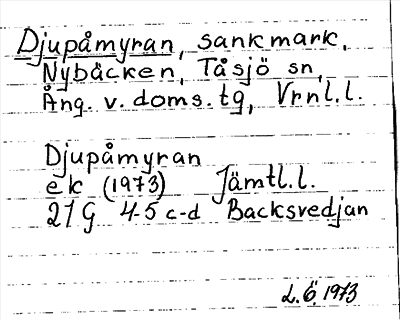 Djupåmyran, sankmark,
Nybäcken, Tåsjö sn,
Ång. v. doms. tg, Vrnl.l.
Djupåmyran
ek (1973) Jämtl.l.
21G 4-5 c-d Backsvedjan
L.Ö. 1973